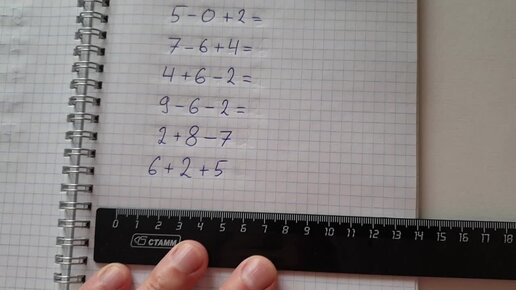 5 - 0 + 2 =
7 - 6 + 4 =
4 + 6 - 2 =
9 - 6 - 2 =
2 + 8 - 7
6 + 2 + 5
0 1 2 3 4 5 6 7 8 9 10 11 12 13 14 15 16 17 18
СТАММ